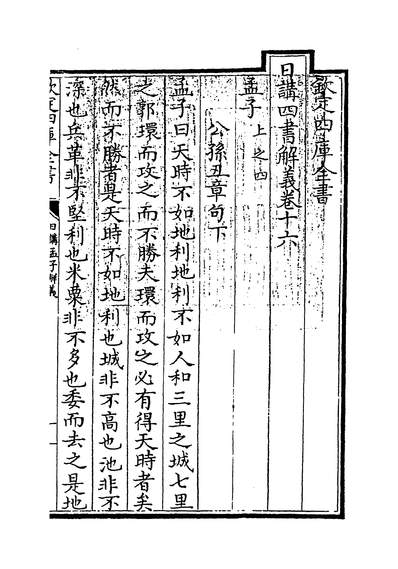 欽定四庫全書
日講四書解義卷十六
孟子 上之四
公孫丑章句下
孟子曰天時不如地利地利不如人和三里之城七里
之郭環而攻之而不勝夫環而攻之必有得天時者矣
然而不勝者是天時不如地利也城非不高也池非不
深也兵革非不堅利也米粟非不多也委而去之是地
欽定四庫全書
日講孟子解義
一